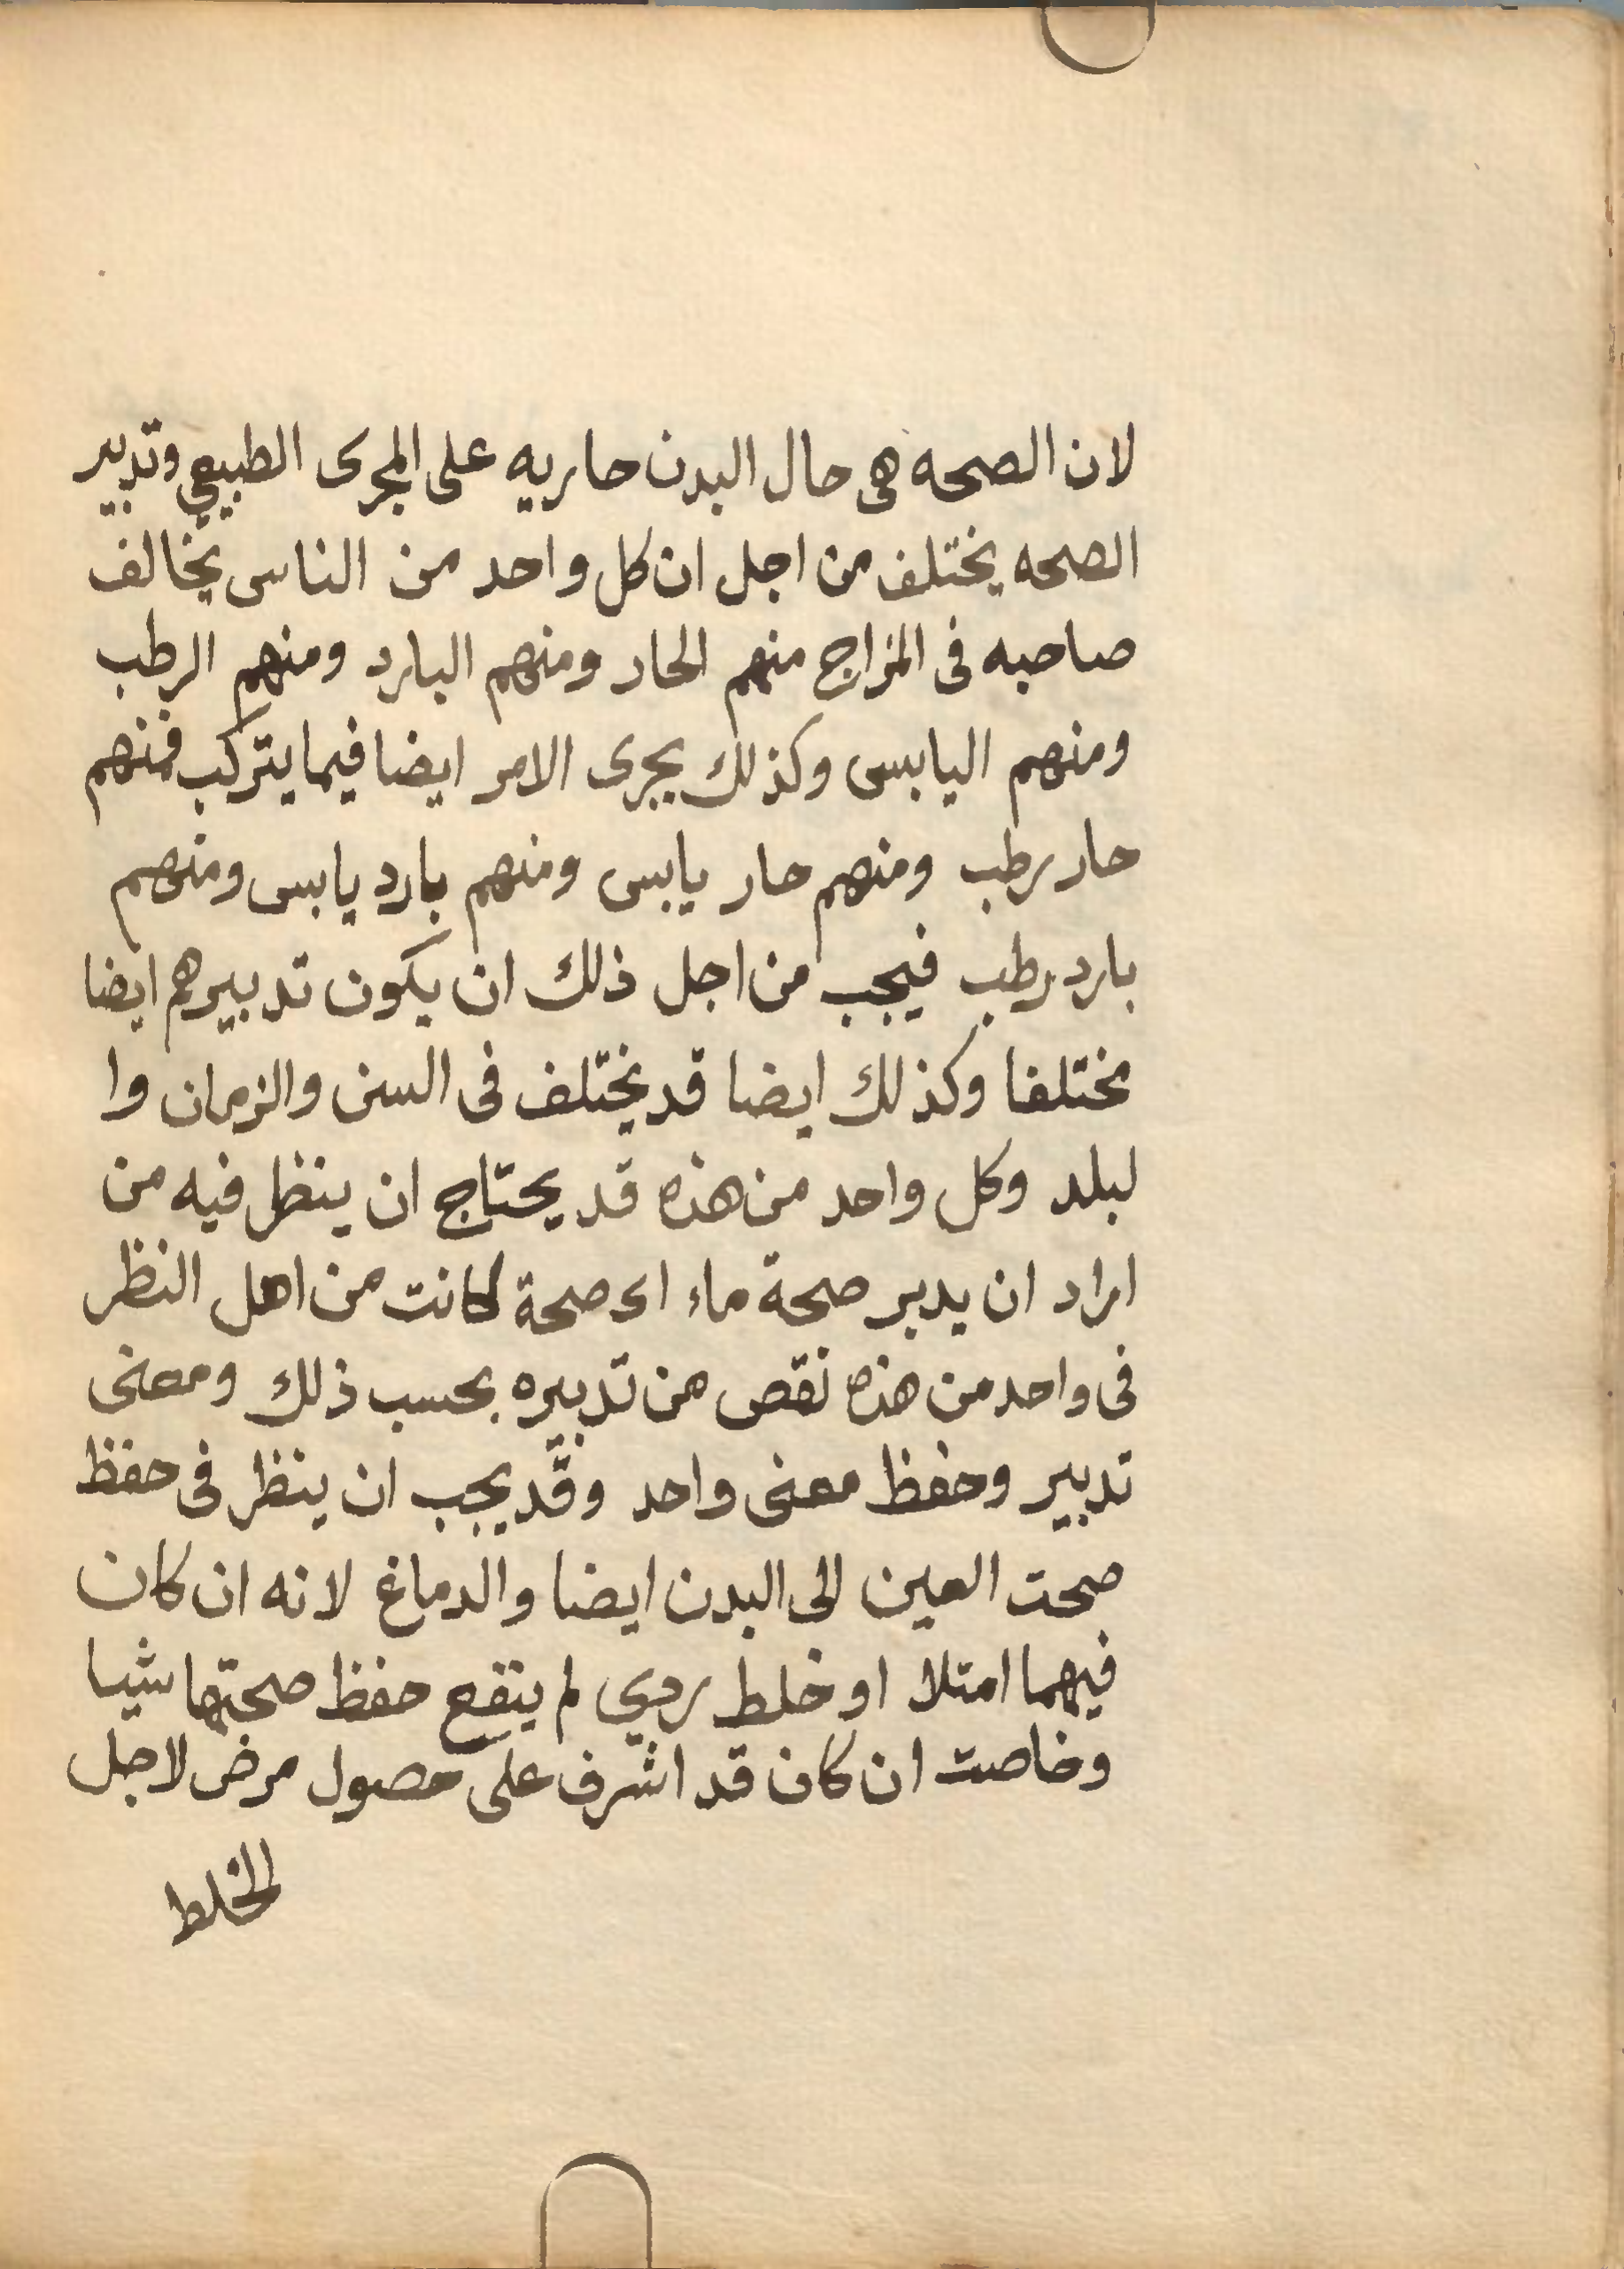 لان الصحه هى حال البدن حاريه على المجرى الطبيعي وتدبير
الصحه يختلف من اجل ان كل واحد من الناس يخالف
صاحبه فى المزاج منهم الحار ومنهم البارد ومنهم الرطب
ومنهم اليابس وكذلك يجرى الامر ايضا فيما يتركب فمنهم
حار رطب ومنهم حار يابس ومنهم بارد يابس ومنهم
بارد رطب فيجب من اجل ذلك ان يكون تدبيرهم ايضا
مختلفا وكذلك ايضا قد يختلف فى السن والزمان وا
لبلد وكل واحد من هذه قد يحتاج ان ينظر فيه من
اراد ان يدبر صحة ماء اى صحة كانت من اهل النظر
فى واحد من هذه نقص من تدبيره بحسب ذلك ومعنى
تدبير وحفظ معنى واحد وقد يجب ان ينظر فى حفظ
صحت العين الى البدن ايضا والدماغ لانه ان كان
فيهما امتلا او خلط ردي لم ينفع حفظ صحتها شيا
وخاصت ان كان قد اشرف على حصول مرض لاجل
الخلط